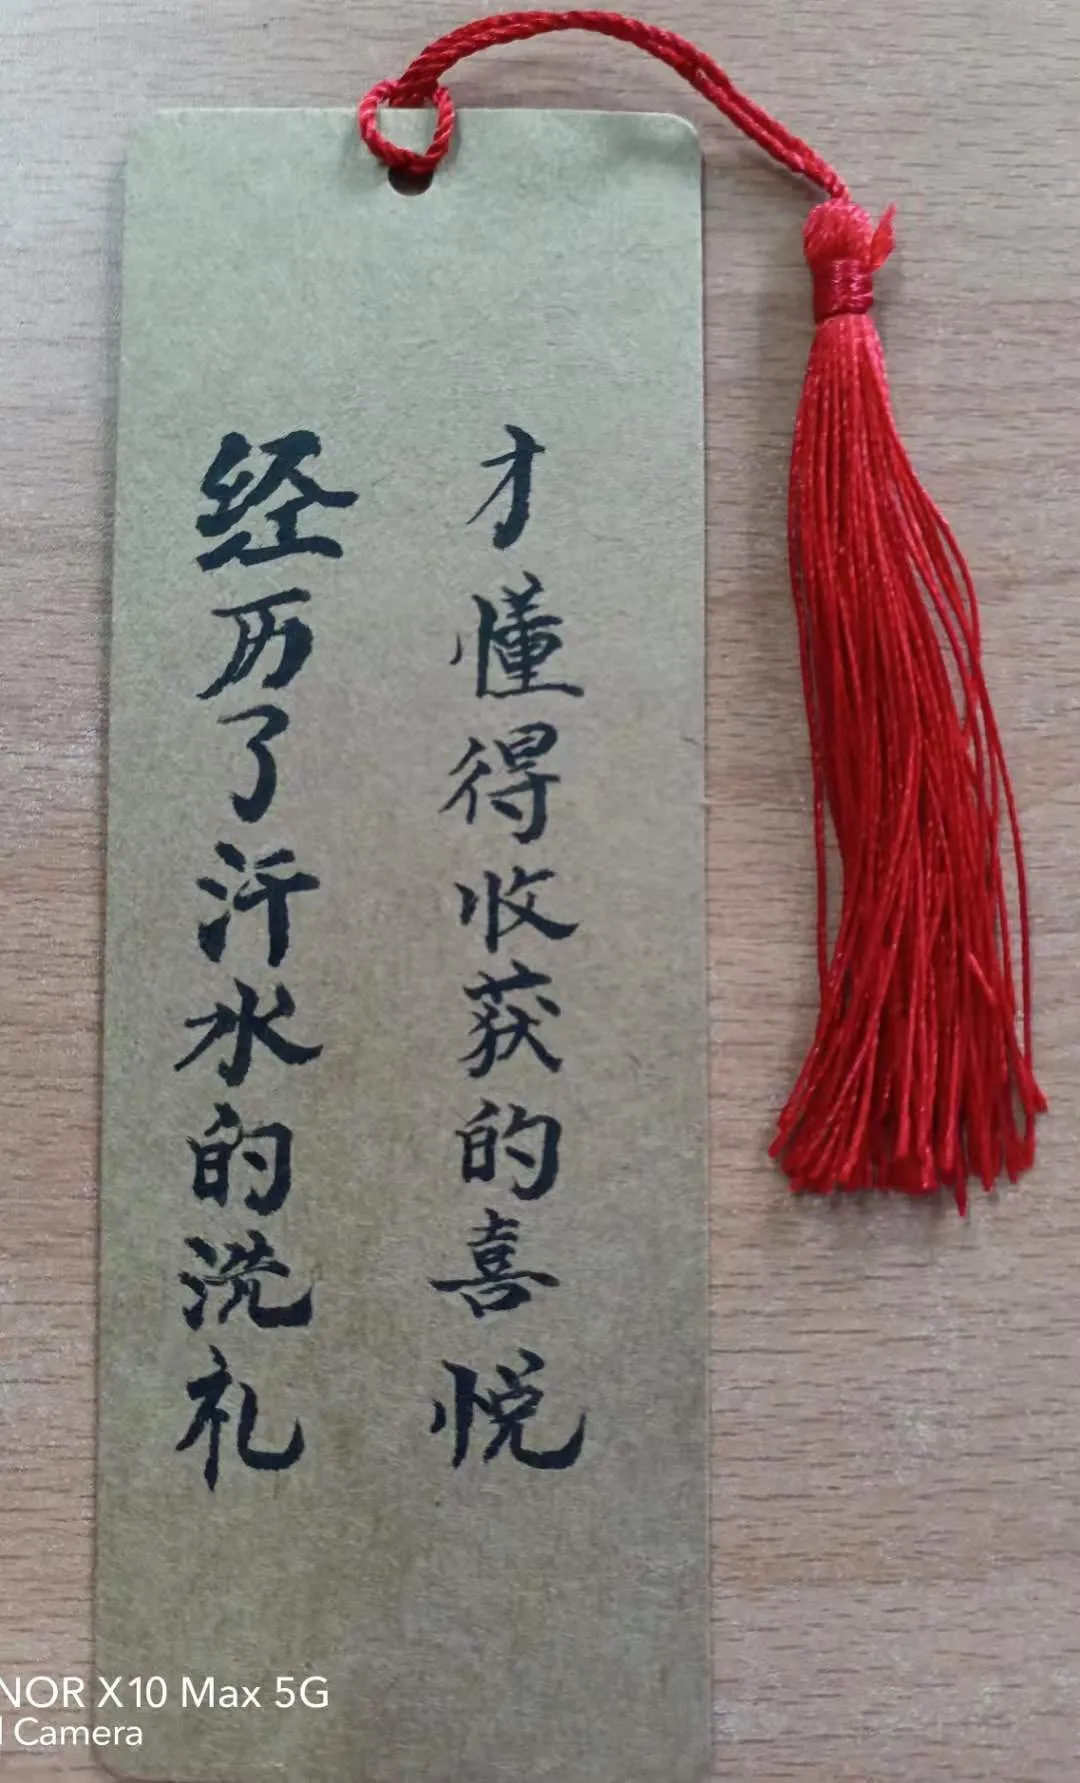 经历了汗水的洗礼
才懂得收获的喜悦
NOR X10 Max 5G
Camera